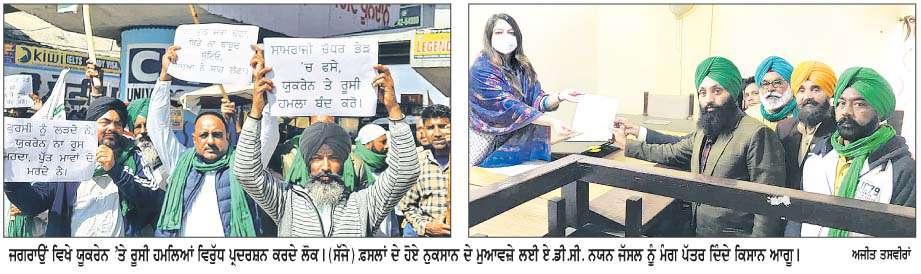 KIWI
IELTS
LEGEND
ਸਾਮਰਾਜੀ ਚੌਧਰ ਭੇੜ
'ਚ ਫਸੇ,
ਯੂਕਰੇਨ 'ਤੇ ਰੂਸੀ
ਹਮਲਾ ਬੰਦ ਕਰੋ।
ਕੁਰਸੀ ਨੂੰ ਲੜਦੇ ਨੇ,
ਯੂਕਰੇਨ ਨਾ ਰੂਸ
ਮਰਦਾ, ਪੁੱਤ ਮਾਵਾਂ ਦੇ
ਮਰਦੇ ਨੇ।
ਜਗਰਾਉਂ ਵਿਖੇ ਯੂਕਰੇਨ 'ਤੇ ਰੂਸੀ ਹਮਲਿਆਂ ਵਿਰੁੱਧ ਪ੍ਰਦਰਸ਼ਨ ਕਰਦੇ ਲੋਕ। (ਸੱਜੇ) ਫ਼ਸਲਾਂ ਦੇ ਹੋਏ ਨੁਕਸਾਨ ਦੇ ਮੁਆਵਜ਼ੇ ਲਈ ਏ.ਡੀ.ਸੀ. ਨਯਨ ਜੱਸਲ ਨੂੰ ਮੰਗ ਪੱਤਰ ਦਿੰਦੇ ਕਿਸਾਨ ਆਗੂ। ਅਜੀਤ ਤਸਵੀਰਾਂ